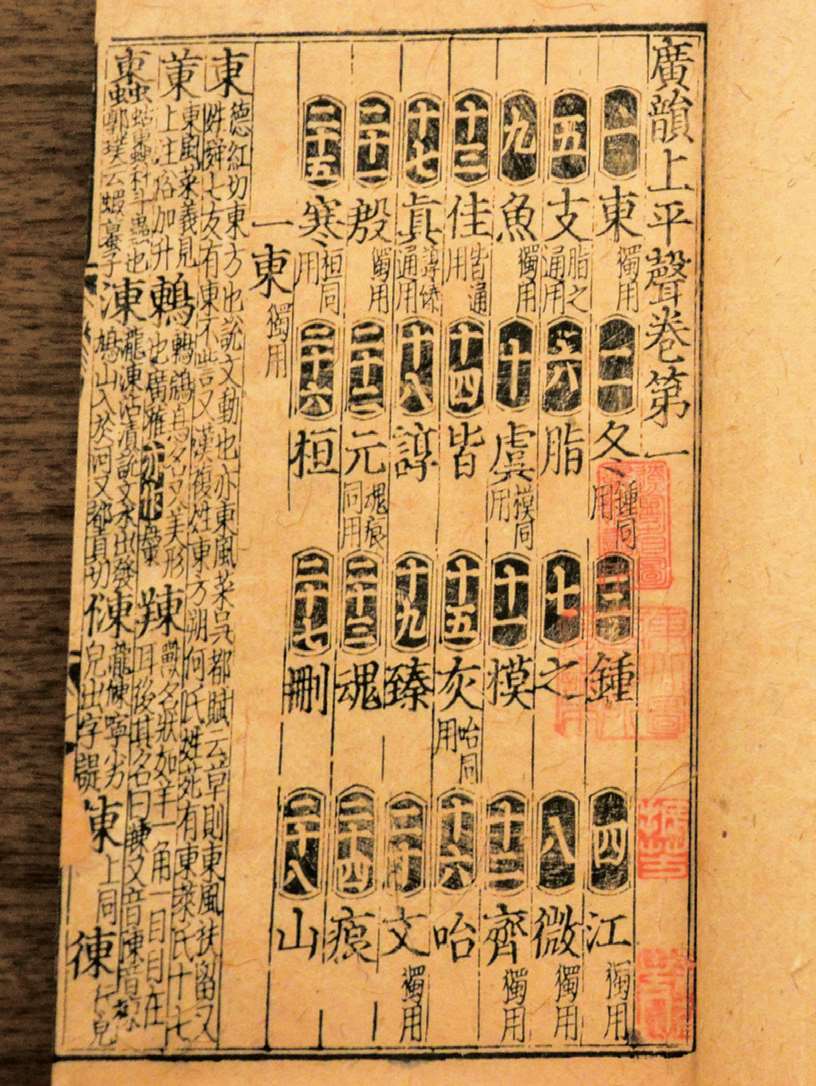 廣韻上平聲卷第一
一東獨用 二冬鍾同用 三鍾 四江獨用
五支脂之通用 六脂 七之 八微獨用
九魚獨用 十虞模同用 十一模 十二齊獨用
十三佳皆通用 十四皆 十五灰咍同用 十六咍
十七眞諄臻通用 十八諄 十九臻 二十文獨用
二十一殷獨用 二十二元魂痕同用 二十三魂 二十四痕
二十五寒桓同用 二十六桓 二十七刪 二十八山
一東獨用
東德紅切東方也說文動也亦東風菜吳都賦云草則東風扶留又姓舜七友有東不訾又漢複姓東方朔何氏姓苑有東萊氏十七
菄東風菜義見上注俗加艹 鶇鶇鵍鳥名又美形也廣雅亦作 䍶獸名狀如羊一角一目目在耳後其名曰䍶又音陳音棟
科斗蟲也郭璞云蝦蟇子 涷瀧涷沾漬說文水出發鳩山入於河又都貢切 倲儱倲儜劣皃出字諟 上同 徚行皃